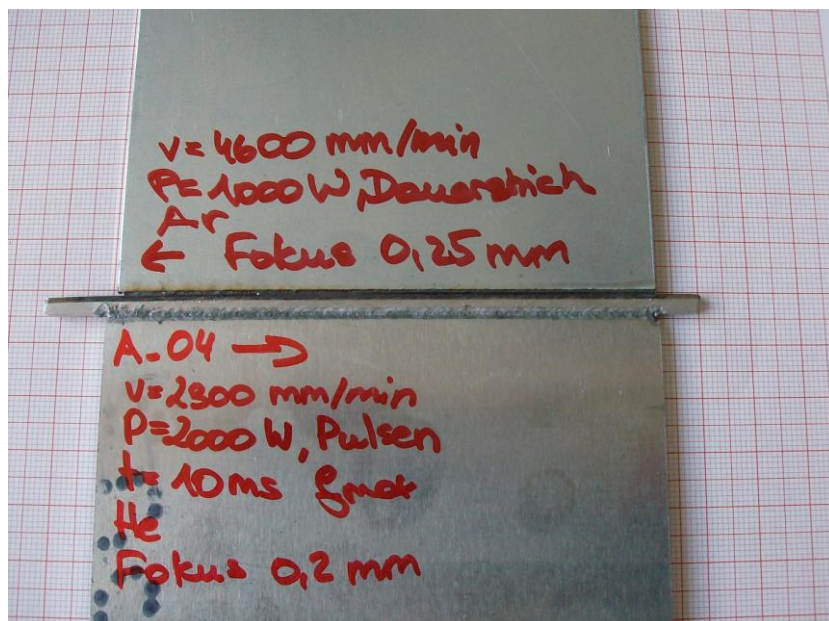 v= 4600 mm/min
P= 1000 W, Dauerstrich
Ar
← Fokus 0,25 mm
A-04 →
v= 2300 mm/min
P= 2000 W, Pulsen
t= 10 ms fmax
He
Fokus 0,2 mm